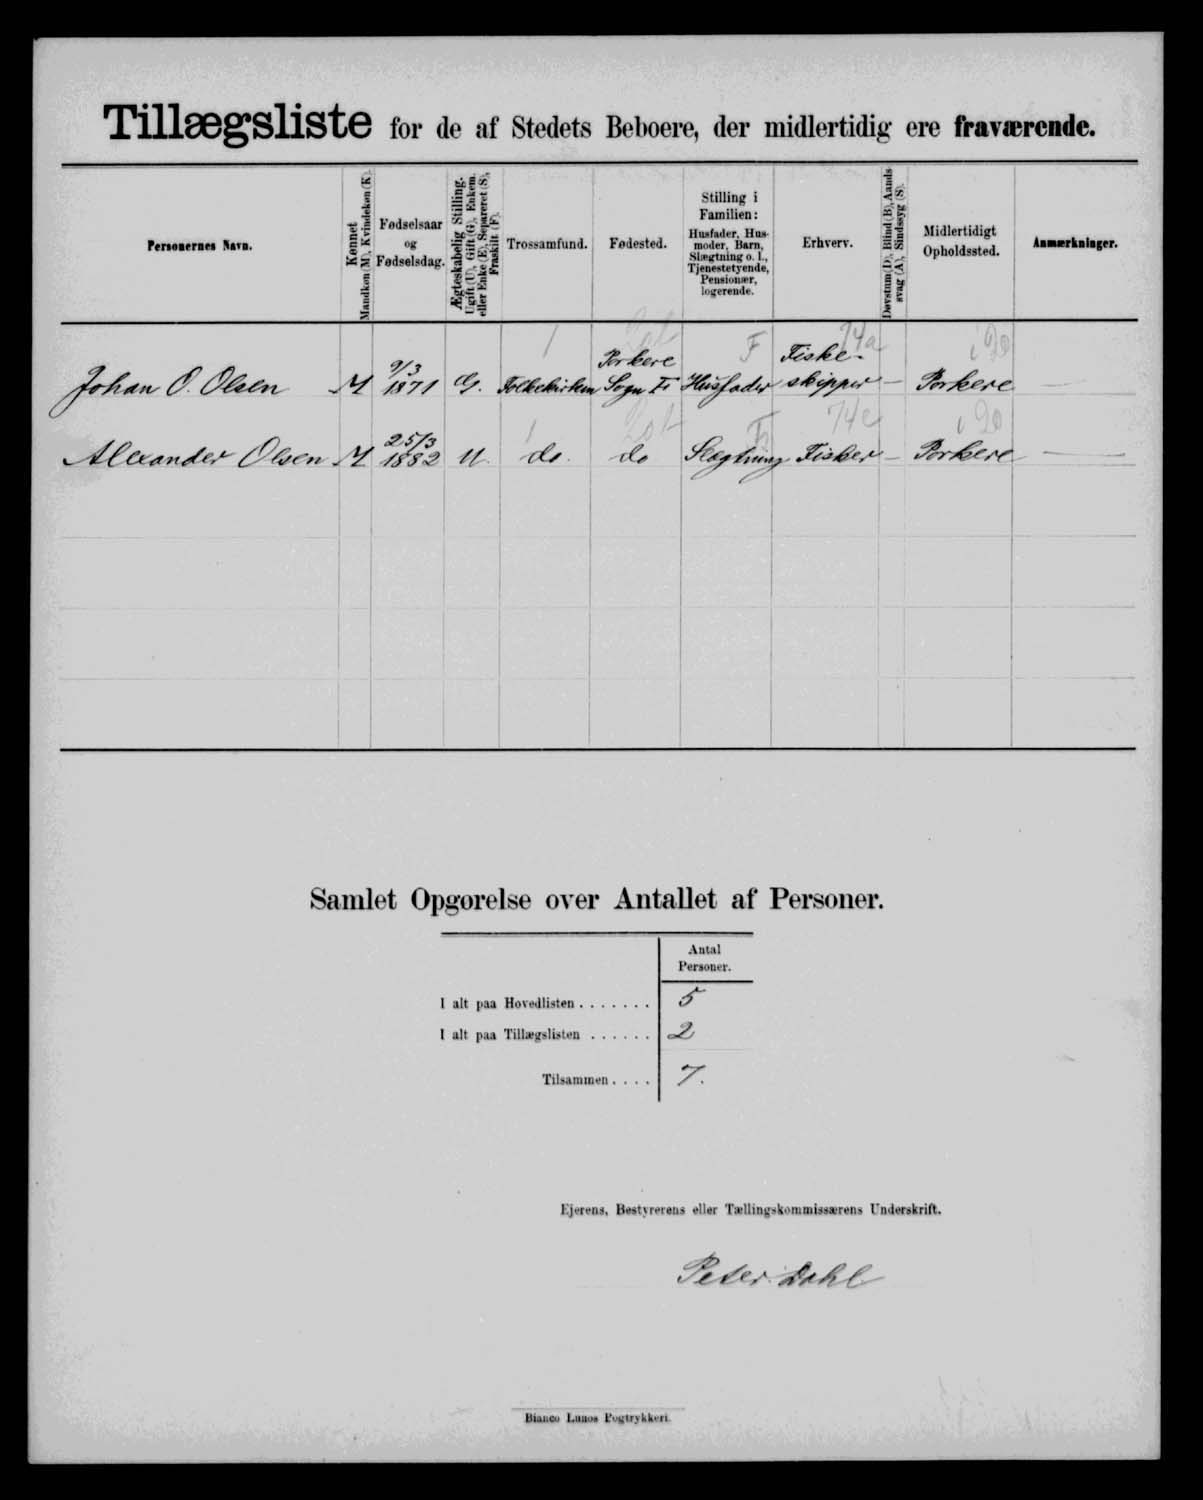 Tillægsliste for de af Stedets Beboere, der midlertidig ere fraværende.
Personernes Navn.
Kønnet
Mandkøn (M), Kvindekøn (K).
Fødselsaar
og
Fødselsdag.
Ægteskabelig Stilling.
Ugift (U), Gift (G), Enkem.
eller Enke (E), Separeret (S),
Fraskilt (F).
Trossamfund.
Fødested.
Stilling i
Familien:
Husfader, Hus-
moder, Barn,
Slægtning o. l.,
Tjenestetyende,
Pensionær,
logerende.
Erhverv.
Døvstum (D), Blind (B), Aands-
svag (A), Sindssyg (S).
Midlertidigt
Opholdssted.
Anmærkninger.
1 F 74a
9/3 Porkere Fiske-
Johan O. Olsen M 1871 G. Folkekirken Sogn Fr Husfader skipper — Porkere —
1 74c
25/3
Alexander Olsen M 1882 U. do. do Slægtning Fisker — Porkere —
Samlet Opgørelse over Antallet af Personer.
Antal
Personer.
I alt paa Hovedlisten . . . . . . . 5
I alt paa Tillægslisten . . . . . . 2
Tilsammen . . . . 7.
Ejerens, Bestyrerens eller Tællingskommissærens Underskrift.
Peter Dahl
Bianco Lunos Bogtrykkeri.